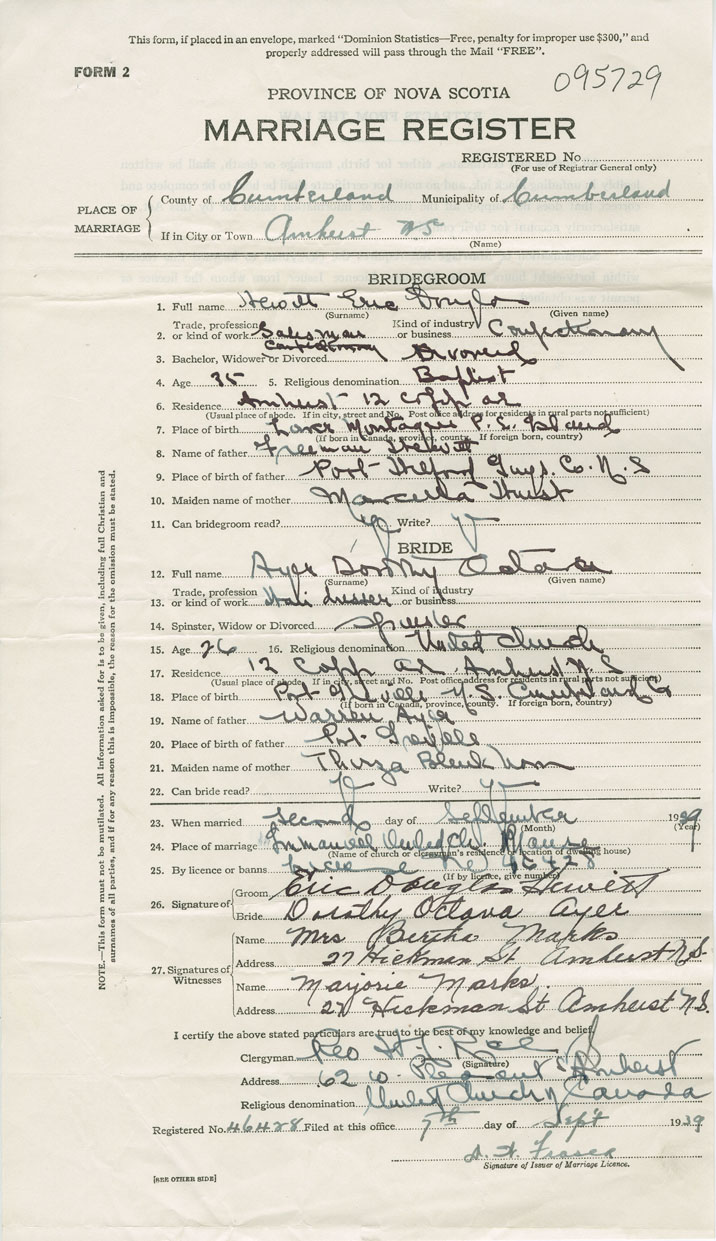 This form, if placed in an envelope, marked “Dominion Statistics—Free, penalty for improper use $300,” and
properly addressed will pass through the Mail “FREE”.
FORM 2
095729
PROVINCE OF NOVA SCOTIA
MARRIAGE REGISTER
REGISTERED No.
(For use of Registrar General only)
PLACE OF MARRIAGE
County of Cumberland Municipality of Cumberland
If in City or Town Amherst NS
(Name)
BRIDEGROOM
1. Full name Hewitt Eric Douglas
(Surname) (Given name)
2. Trade, profession or kind of work Salesman Confectionary Kind of industry or business Confectionary
3. Bachelor, Widower or Divorced Divorced
4. Age 35 5. Religious denomination Baptist
6. Residence Amherst 12 Copp av
(Usual place of abode. If in city, street and No. Post office address for residents in rural parts not sufficient)
7. Place of birth Lower Montague P.E. Island
(If born in Canada, province, county. If foreign born, country)
8. Name of father Freeman Hewitt
9. Place of birth of father Port Hilford Guys. Co. N.S
10. Maiden name of mother
11. Can bridegroom read? yes Write? yes
BRIDE
12. Full name Ayer Dorothy Octava
(Surname) (Given name)
13. Trade, profession or kind of work Hair dresser Kind of industry or business
14. Spinster, Widow or Divorced Spinster
15. Age 26 16. Religious denomination United Church
17. Residence 12 Copp av. Amherst N.S
(Usual place of abode. If in city, street and No. Post office address for residents in rural parts not sufficient)
18. Place of birth Port Greville N.S. Cumberland Co
(If born in Canada, province, county. If foreign born, country)
19. Name of father Warren Ayer
20. Place of birth of father Port Greville
21. Maiden name of mother Thirza Blenkhorn
22. Can bride read? yes Write? yes
23. When married second day of September 1939
(Month) (Year)
24. Place of marriage Immanuel United Ch. Manse
(Name of church or clergyman’s residence or location of dwelling house)
25. By licence or banns License No 46428
(If by licence, give number)
26. Signature of
Groom Eric Douglas Hewitt
Bride Dorothy Octava Ayer
27. Signatures of Witnesses
Name Mrs Bertha Marks
Address 27 Hickman St Amherst N.S.
Name Marjorie Marks.
Address 27 Hickman St Amherst N.S.
I certify the above stated particulars are true to the best of my knowledge and belief.
Clergyman
(Signature)
Address 62 W. Pleasant St Amherst
Religious denomination United Church of Canada
Registered No. 46428 Filed at this office 7th day of Sept 1939
Signature of Issuer of Marriage Licence.
[SEE OTHER SIDE]
NOTE.—This form must not be mutilated. All information asked for is to be given, including full Christian and
surnames of all parties, and if for any reason this is impossible, the reason for the omission must be stated.